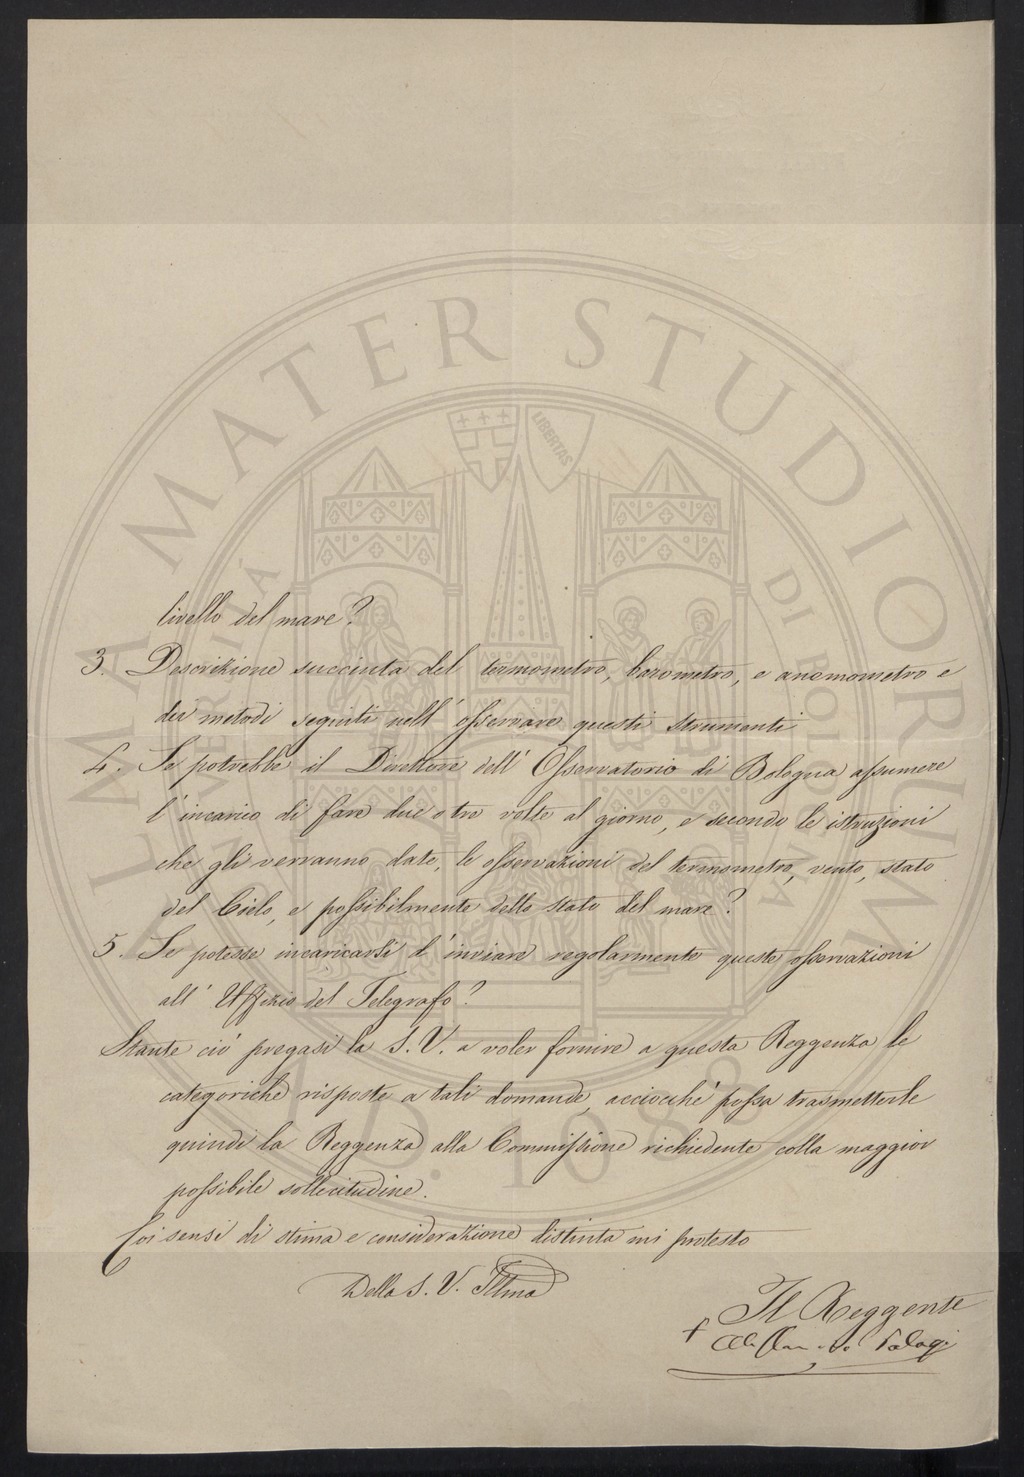 livello del mare?
3. Descrizione succinta del termometro, barometro, e anemometro e
dei metodi seguiti nell' osservare questi strumenti
4. Se potrebbe il Direttore dell' Osservatorio di Bologna assumere
l' incarico di fare due o tre volte al giorno, e secondo le istruzioni
che gli verranno date, le osservazioni del termometro, vento, stato
del Cielo, e possibilmente dello stato del mare?
5. Se potesse incaricarsi d' inviare regolarmente queste osservazioni
all' Uffizio del Telegrafo?
Stante ciò pregasi la S. V. a voler fornire a questa Reggenza le
categoriche risposte a tali domande, acciocchè possa trasmetterle
quindi la Reggenza alla Commissione richiedente colla maggior
possibile sollecitudine.
Coi sensi di stima e considerazione distinta mi protesto
Della S. V. Illma
Il Reggente
Palagi
ALMA MATER STUDIORUM
UNIVERSITÀ DI BOLOGNA
LIBERTAS
A.D. 1088